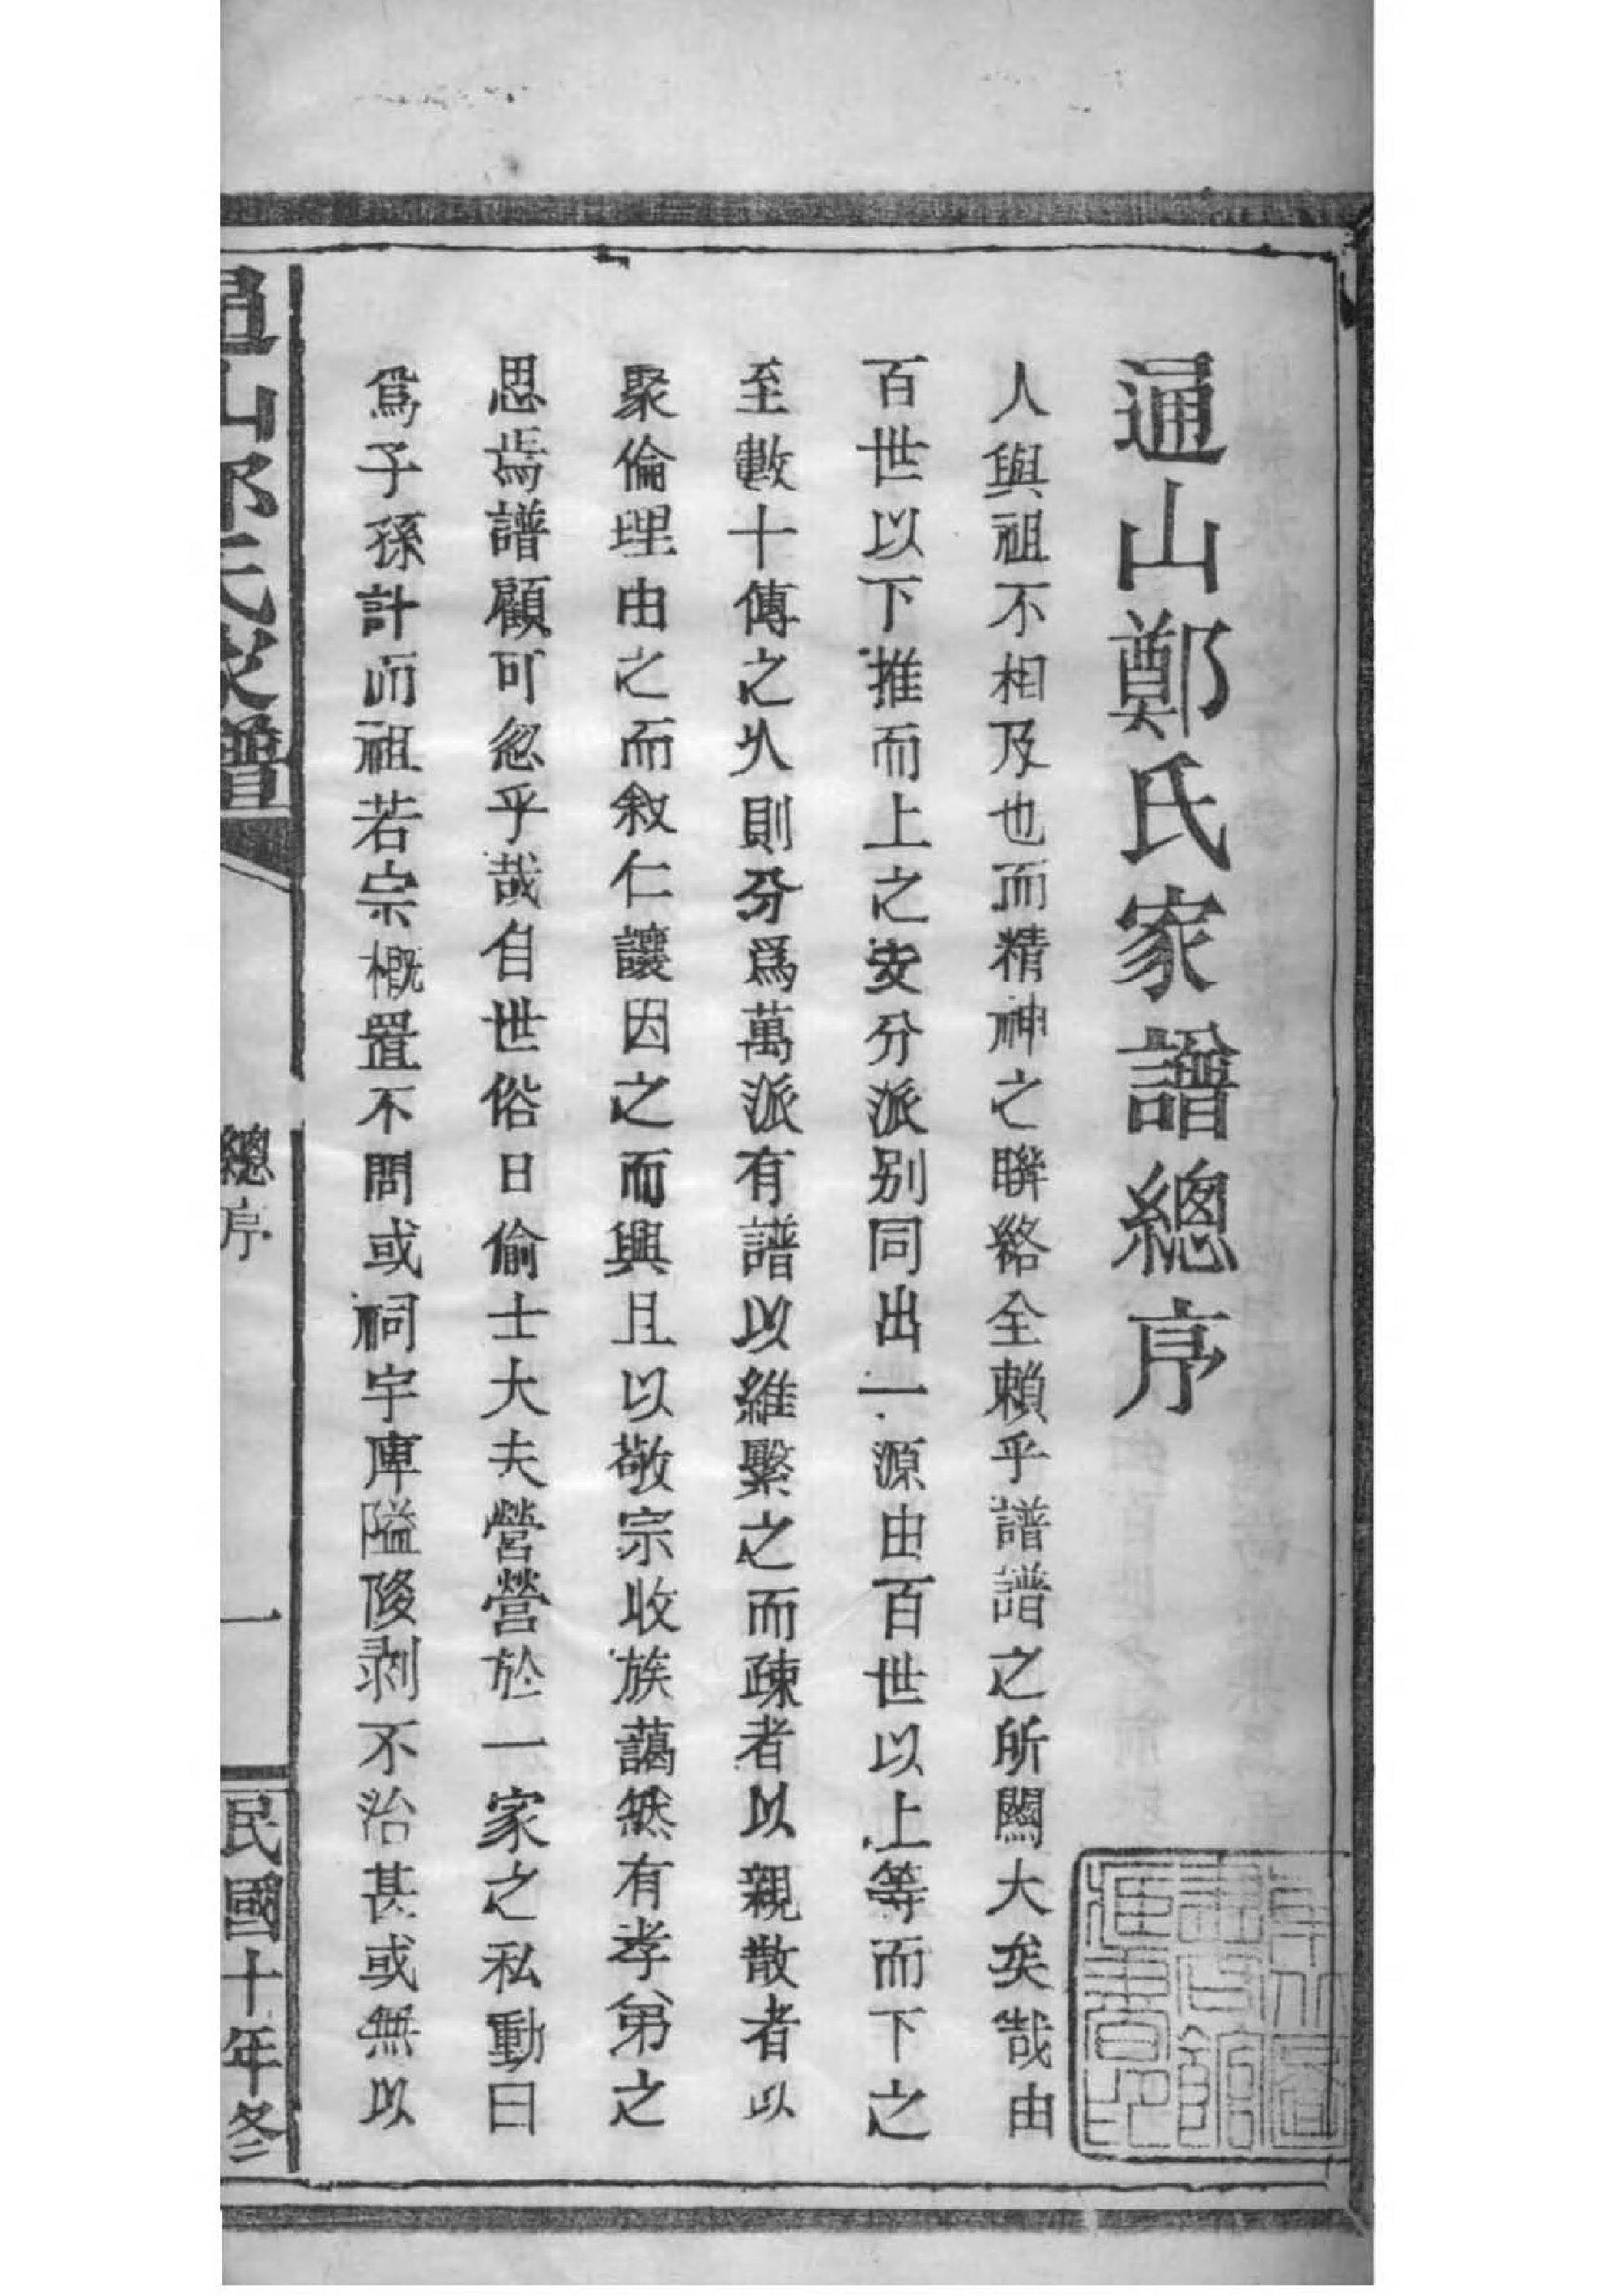 通山鄭氏家譜總序
人與祖不相及也而精神之聯絡全賴乎譜譜之所關大矣哉由
百世以下推而上之支分派别同出一源由百世以上等而下之
至數十傳之久則分爲萬派有譜以維繫之而疎者以親散者以
聚倫理由之而敘仁讓因之而興且以敬宗收族藹然有孝弟之
思焉譜顧可忽乎哉自世俗日偷士大夫營營於一家之私動曰
爲子孫計而祖若宗概置不問或祠宇庳隘陊剥不治甚或無以
通山鄭氏家譜
總序
一
民國十年冬